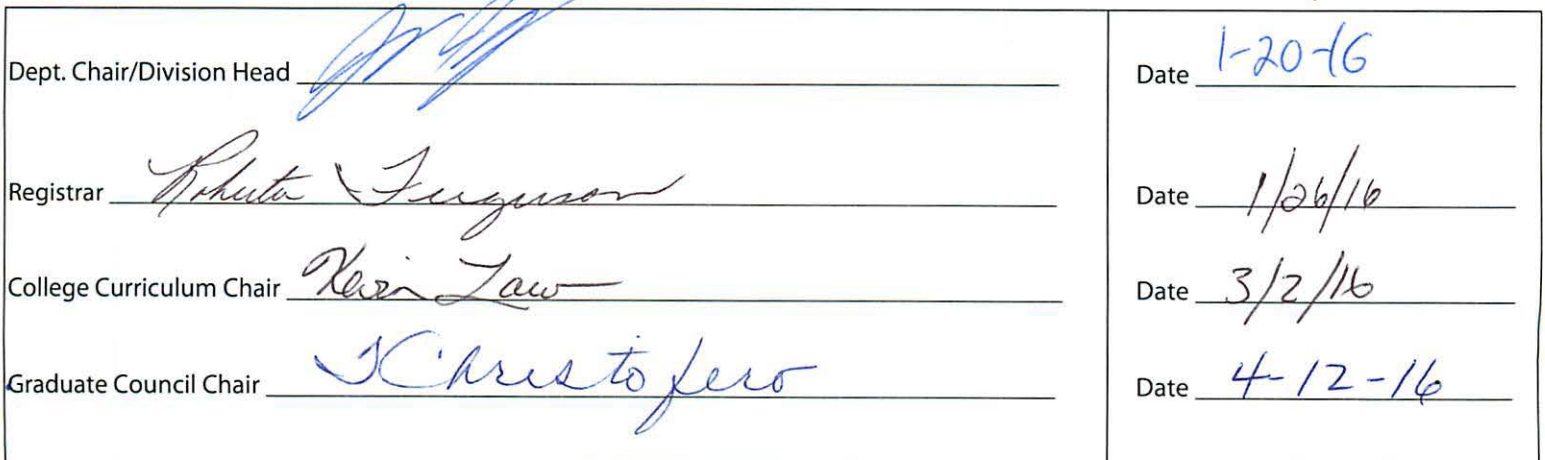 Dept. Chair/Division Head Date 1-20-16
Registrar Roberta Ferguson Date 1/26/16
College Curriculum Chair Kevin Law Date 3/2/16
Graduate Council Chair TChristofero Date 4-12-16